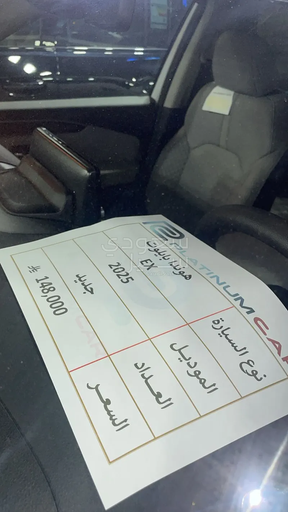 PLATINUM CAR
نوع السيارة هوندا بايلوت EX
الموديل 2025
العداد جديد
السعر 148,000